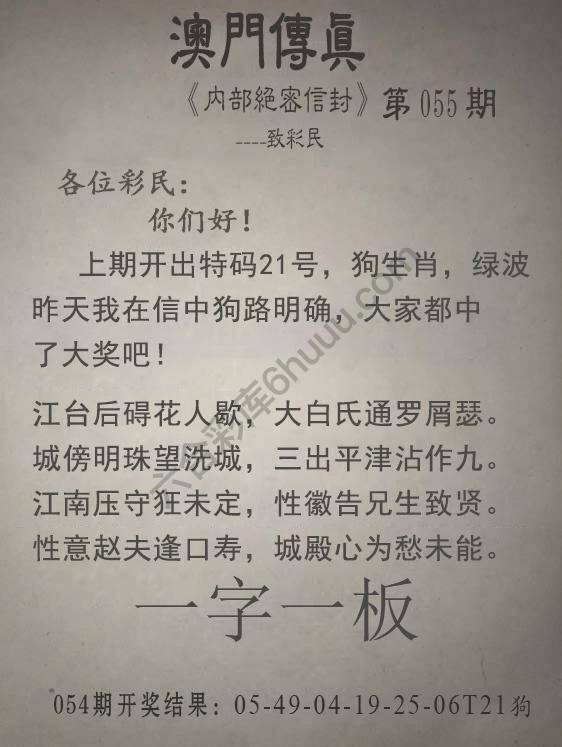 澳門傳眞
《内部絕密信封》第055期
----致彩民
各位彩民：
你们好！
上期开出特码21号，狗生肖，绿波
昨天我在信中狗路明确，大家都中
了大奖吧！
江台后碍花人歇，大白氏通罗屑瑟。
城傍明珠望洗城，三出平津沾作九。
江南压守狂未定，性徽告兄生致贤。
性意赵夫逢口寿，城殿心为愁未能。
一字一板
054期开奖结果：05-49-04-19-25-06T21狗
六合彩库6huuu.com